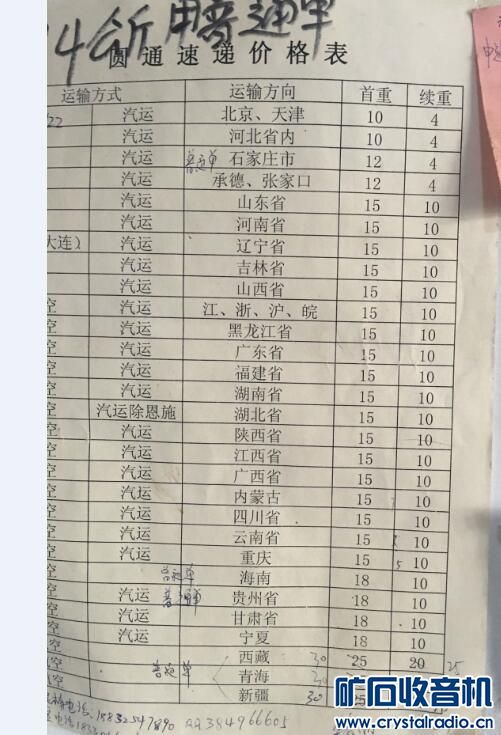 24公斤用普通单
圆通速递价格表
运输方式 运输方向 首重 续重
22 汽运 北京、天津 10 4
汽运 河北省内 10 4
汽运 普通单 石家庄市 12 4
汽运 承德、张家口 12 4
汽运 山东省 15 10
汽运 河南省 15 10
大连） 汽运 辽宁省 15 10
汽运 吉林省 15 10
汽运 山西省 15 10
空 汽运 江、浙、沪、皖 15 10
空 汽运 黑龙江省 15 10
空 汽运 广东省 15 10
空 汽运 福建省 15 10
空 汽运 湖南省 15 10
空 汽运除恩施 湖北省 15 10
空 汽运 陕西省 15 10
空 汽运 江西省 15 10
空 汽运 广西省 15 10
空 汽运 内蒙古 15 10
空 汽运 四川省 15 10
空 汽运 云南省 15 10
空 汽运 重庆 15 10
空 普通单 海南 18 10
空 汽运 普通单 贵州省 18 10
空 汽运 甘肃省 18 10
空 汽运 宁夏 18 10
空 西藏 30 25 20 25
空 普通单 青海 30
空 新疆 30
QQ384966605
矿石收音机
www.crystalradio.cn